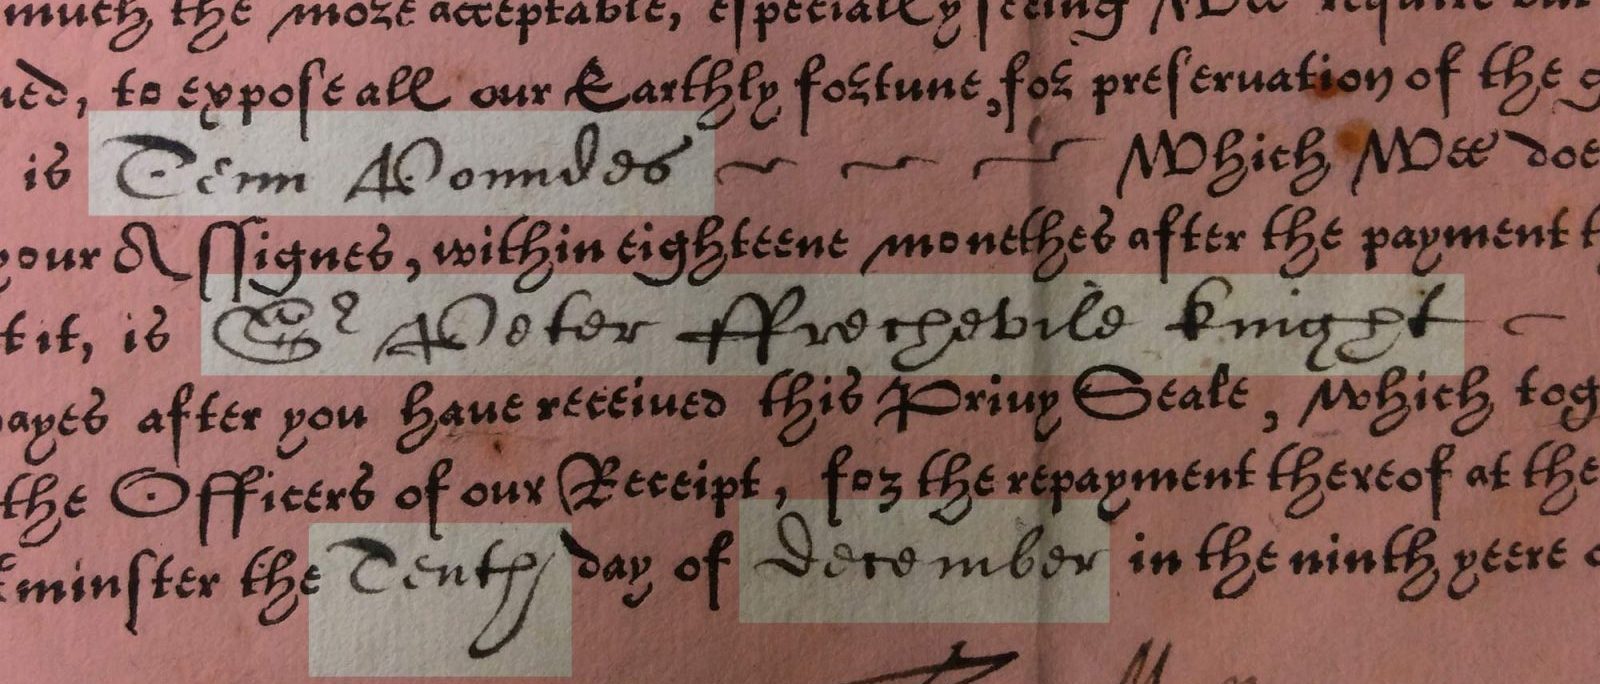 much the more acceptable, especially seeing Wee require but
ued, to expose all our Earthly fortune, for preseruation of the g
is Tenn Poundes Which Wee doe
your Assignes, within eighteene monethes after the payment t
t it, is Sr Peter Ffrechevile knight
dayes after you haue receiued this Priuy Seale, which tog
the Officers of our Receipt, for the repayment thereof at the
tminster the Tenth day of december in the ninth yeere o